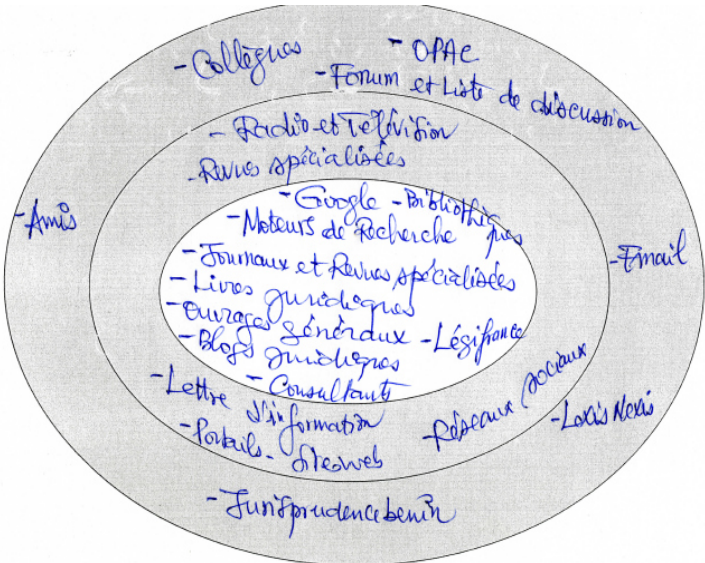 - Collègues
- OPAC
- Forum et Liste de discussion
- Radio et Télévision
- Revues spécialisées
- Amis
- Google - Bibliothèques
- Moteurs de Recherche
- Journaux et Revues spécialisées
- Email
- Livres juridiques
- Ouvrages généraux - Légifrance
- Blogs juridiques
- Consultants
- Lettre d'information
- Réseaux sociaux
- Lexis Nexis
- Portails - sitesweb
- Jurisprudencebenin